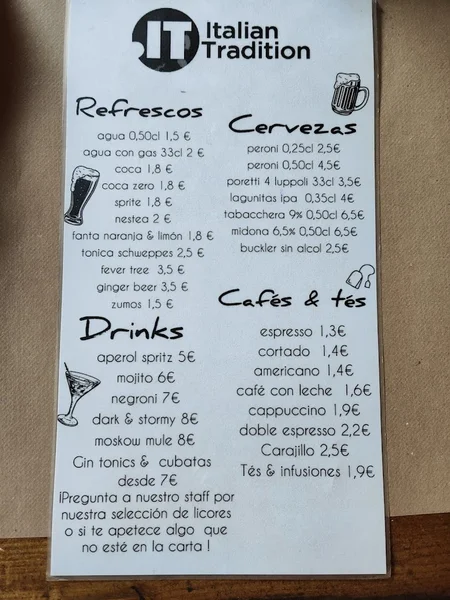 IT Italian
Tradition
Refrescos
agua 0,50cl 1,5 €
agua con gas 33cl 2 €
coca 1,8 €
coca zero 1,8 €
sprite 1,8 €
nestea 2 €
fanta naranja & limón 1,8 €
tonica schweppes 2,5 €
fever tree 3,5 €
ginger beer 3,5 €
zumos 1,5 €
Drinks
aperol spritz 5€
mojito 6€
negroni 7€
dark & stormy 8€
moskow mule 8€
Gin tonics & cubatas
desde 7€
¡Pregunta a nuestro staff por
nuestra selección de licores
o si te apetece algo que
no esté en la carta !
Cervezas
peroni 0,25cl 2,5€
peroni 0,50cl 4,5€
poretti 4 luppoli 33cl 3,5€
lagunitas ipa 0,35cl 4€
tabacchera 9% 0,50cl 6,5€
midona 6,5% 0,50cl 6,5€
buckler sin alcol 2,5€
Cafés & tés
espresso 1,3€
cortado 1,4€
americano 1,4€
café con leche 1,6€
cappuccino 1,9€
doble espresso 2,2€
Carajillo 2,5€
Tés & infusiones 1,9€